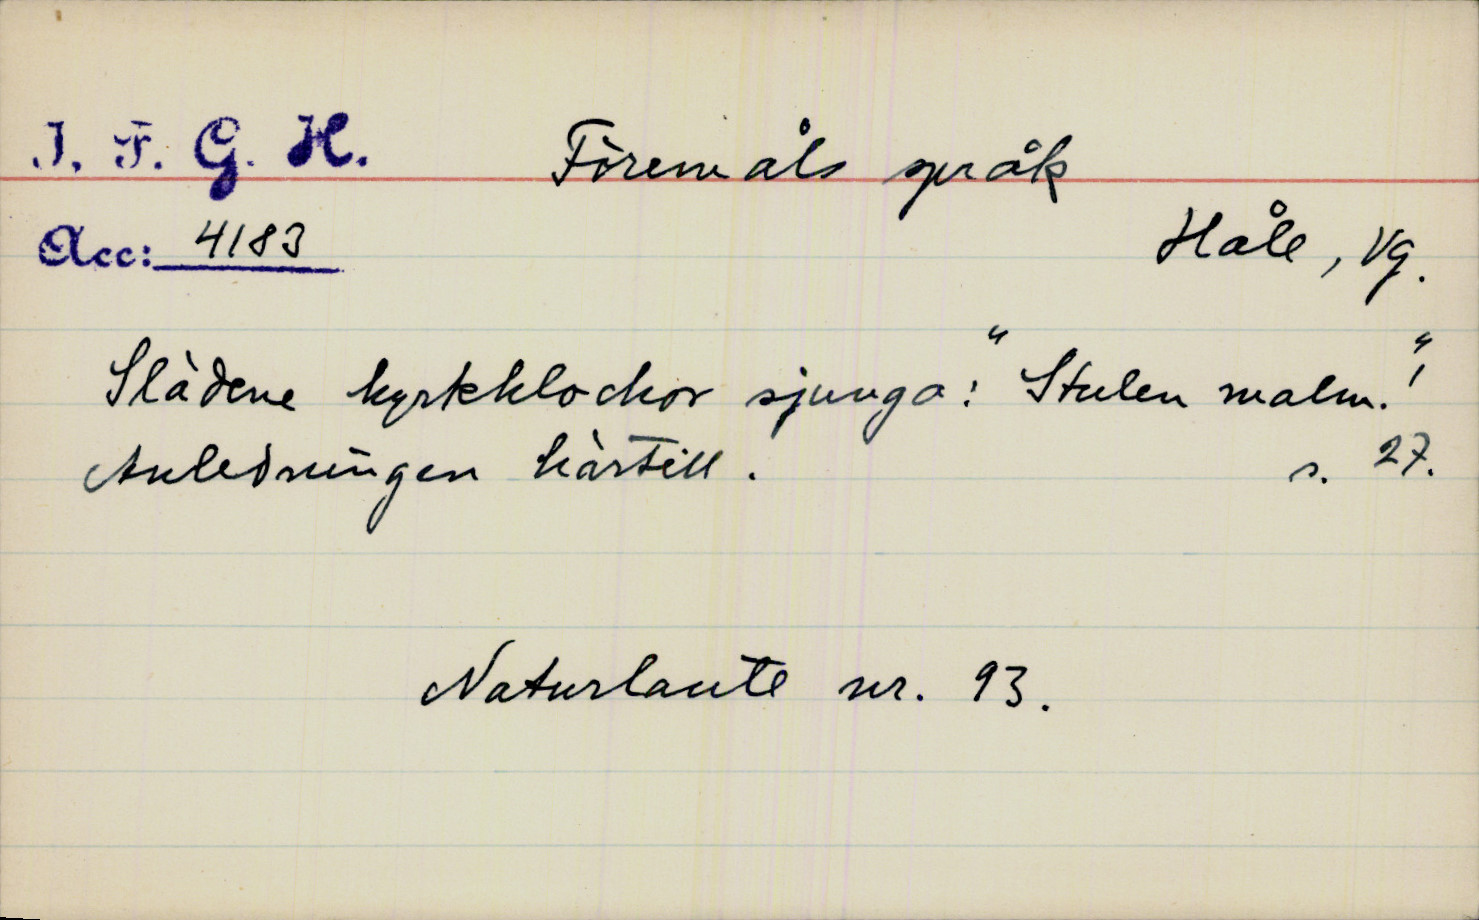 I. F. G. H. Föremåls språk
Acc: 4183 Håle, Vg.
Slädene kyrkklockor sjunga: "Stulen malm!"
Anledningen härtill. s. 27.
Naturlaute nr. 93.